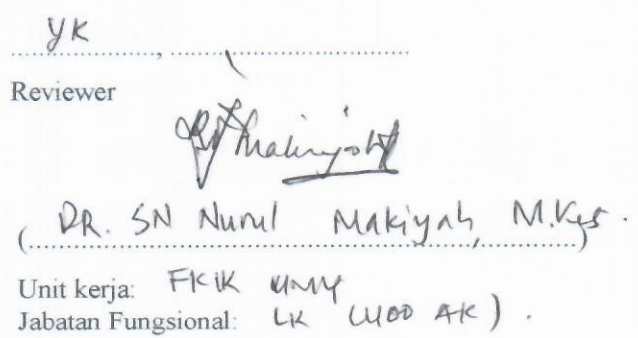 YK
Reviewer
(DR. SN Nurul Makiyah, M.Kes.)
Unit kerja: FKIK UMY
Jabatan Fungsional: LK (400 AK).